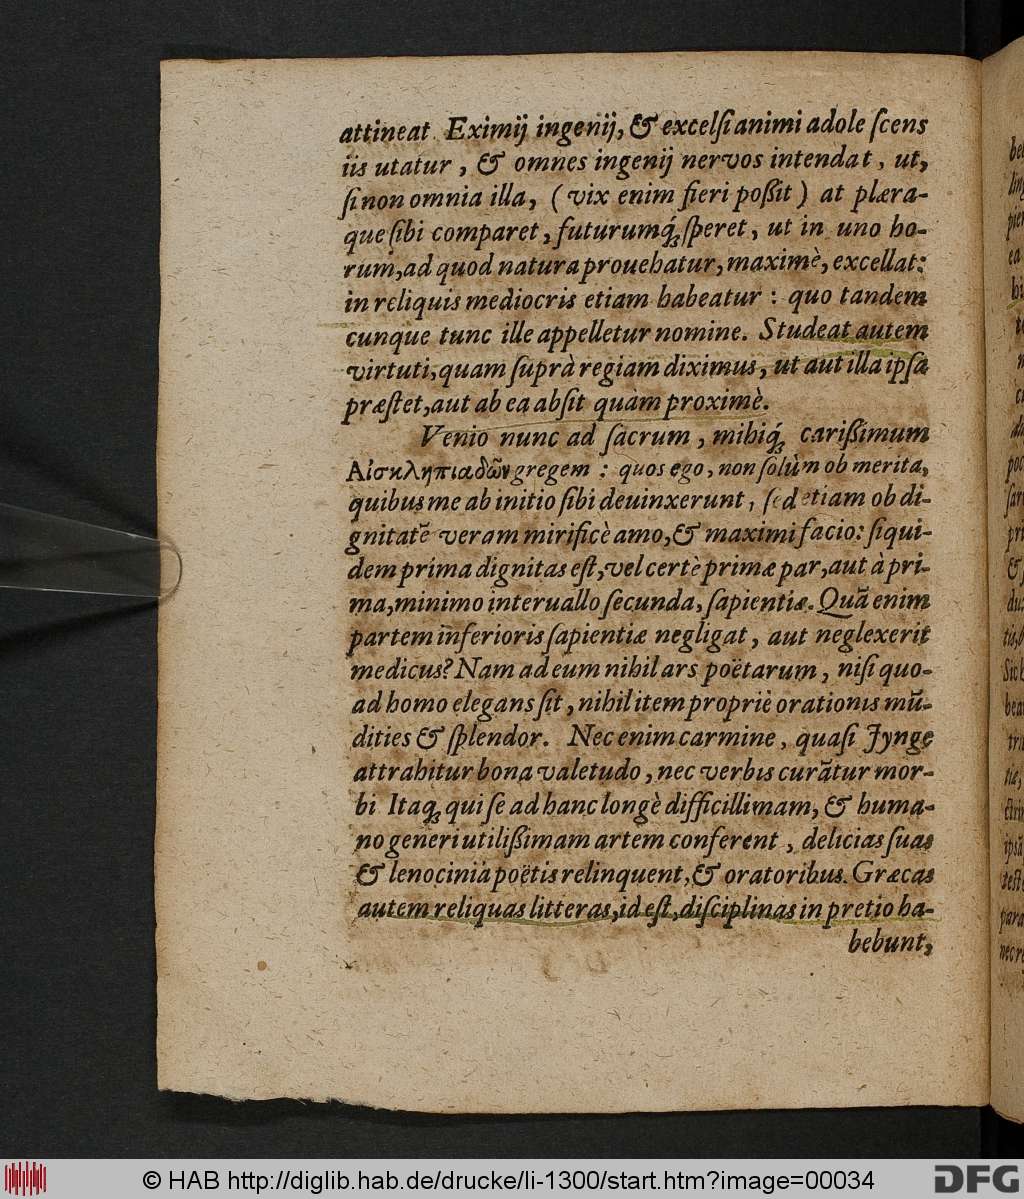 attineat. Eximij ingenij, & excelſi animi adole ſcens
iis utatur, & omnes ingenij nervos intendat, ut,
ſi non omnia illa, (vix enim fieri poßit) at plæra-
que ſibi comparet, futurumq́; ſperet, ut in uno ho-
rum, ad quod natura prouehatur, maximè, excellat:
in reliquis mediocris etiam habeatur: quo tandem
cunque tunc ille appelletur nomine. Studeat autem
virtuti, quam ſuprà regiam diximus, ut aut illa ipſa
præſtet, aut ab ea abſit quàm proximè.
Venio nunc ad ſacrum, mihiq́; carißimum
Αἰσκληπιαδῶν gregem: quos ego, non ſolùm ob merita,
quibus me ab initio ſibi deuinxerunt, ſed etiam ob di-
gnitatẽ veram mirificè amo, & maximi facio: ſiqui-
dem prima dignitas eſt, vel certè primæ par, aut à pri-
ma, minimo interuallo ſecunda, ſapientiæ. Quã enim
partem inferioris ſapientiæ negligat, aut neglexerit
medicus? Nam ad eum nihil ars poëtarum, niſi quo-
ad homo elegans ſit, nihil item propriè orationis mũ-
dities & ſplendor. Nec enim carmine, quaſi Jynge
attrahitur bona valetudo, nec verbis curãtur mor-
bi Itaq; qui ſe ad hanc longè difficillimam, & huma-
no generi utilißimam artem conferent, delicias ſuas
& lenocinia poëtis relinquent, & oratoribus. Græcas
autem reliquas litteras, id eſt, diſciplinas in pretio ha-
bebunt,
© HAB http://diglib.hab.de/drucke/li-1300/start.htm?image=00034
DFG